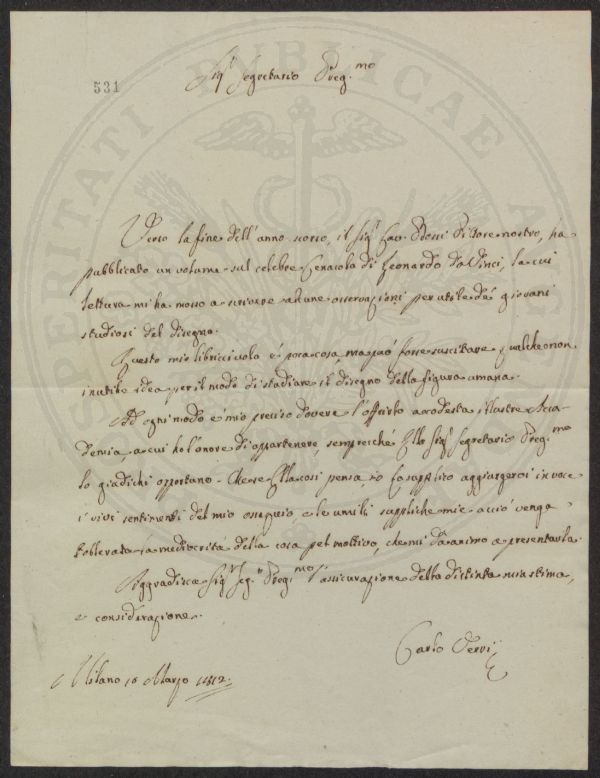 531
Sig.r Segretario Preg.mo
Verso la fine dell'anno scorso, il Sig.r Cav. Bossi Pittore nostro, ha
pubblicato un volume sul celebre Cenacolo di Leonardo da Vinci, la cui
lettura mi ha mosso a scrivere alcune osservazioni per utile de' giovani
studiosi del disegno.
Questo mio libricciuolo è poca cosa ma può forse suscitare qualche non
inutile idea per il modo di studiare il disegno della figura umana.
Ad ogni modo è mio preciso dovere l'offrirlo a codesta illustre Acca-
demia, a cui ho l'onore di appartenere, sempreché Ella Sig.r Segretario Preg.mo
lo giudichi opportuno. Che se Ella così pensa io La supplico aggiungervi in voce
i vivi sentimenti del mio ossequio e le umili suppliche mie acciò venga
tollerata la mediocrità della cosa pel mottivo, che mi dà animo a presentarla.
Aggradisca Sig.r Seg.o Preg.mo l'assicurazione della distinta mia stima,
e considerazione.
Carlo
Milano 10 Marzo 1812.
PROSPERITATI PUBLICAE